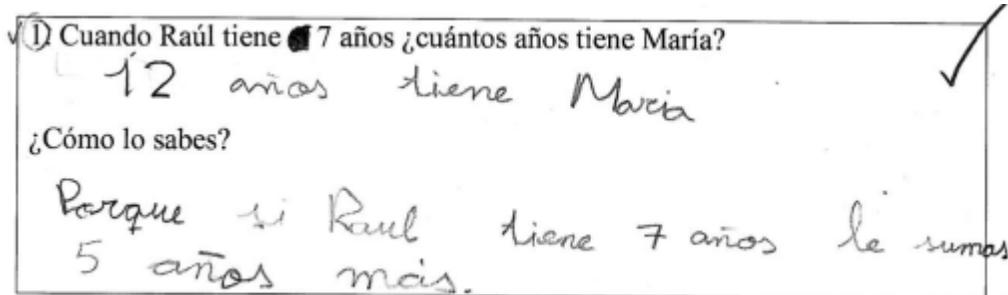 1) Cuando Raúl tiene 7 años ¿cuántos años tiene María?
12 años tiene Maria
¿Cómo lo sabes?
Porque si Raul tiene 7 años le sumas
5 años más.